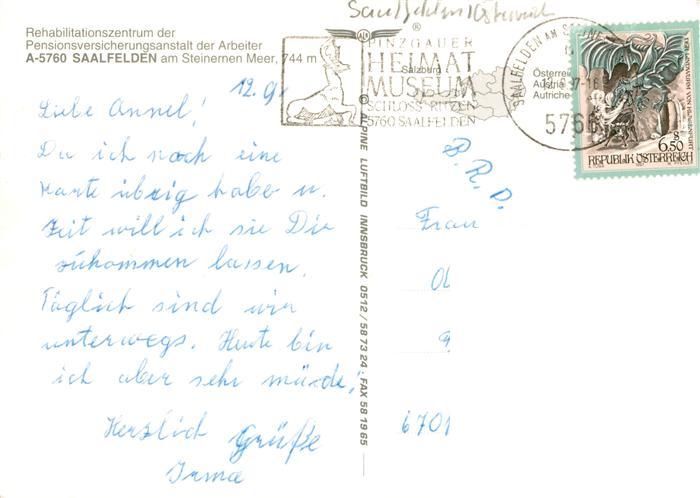 Rehabilitationszentrum der
Pensionsversicherungsanstalt der Arbeiter
A-5760 SAALFELDEN am Steinernen Meer, 744 m
12.9.
Liebe Annel!
Da ich noch eine
Karte übrig habe u.
Zeit will ich sie Dir
zukommen lassen.
Täglich sind wir
unterwegs. Heute bin
ich aber sehr müde,
Herzlich Grüße
Irma
ALPINE LUFTBILD INNSBRUCK 0512/587324, FAX 581985
PINZGAUER
HEIMAT
MUSEUM
SCHLOSS RITZEN
5760 SAALFELDEN
Salzburg
Österreich
Austria
Autriche
SAALFELDEN AM STEINERNEN
5760
S
6.50
REPUBLIK ÖSTERREICH
B.R.D.
Frau
Ol
9
6701